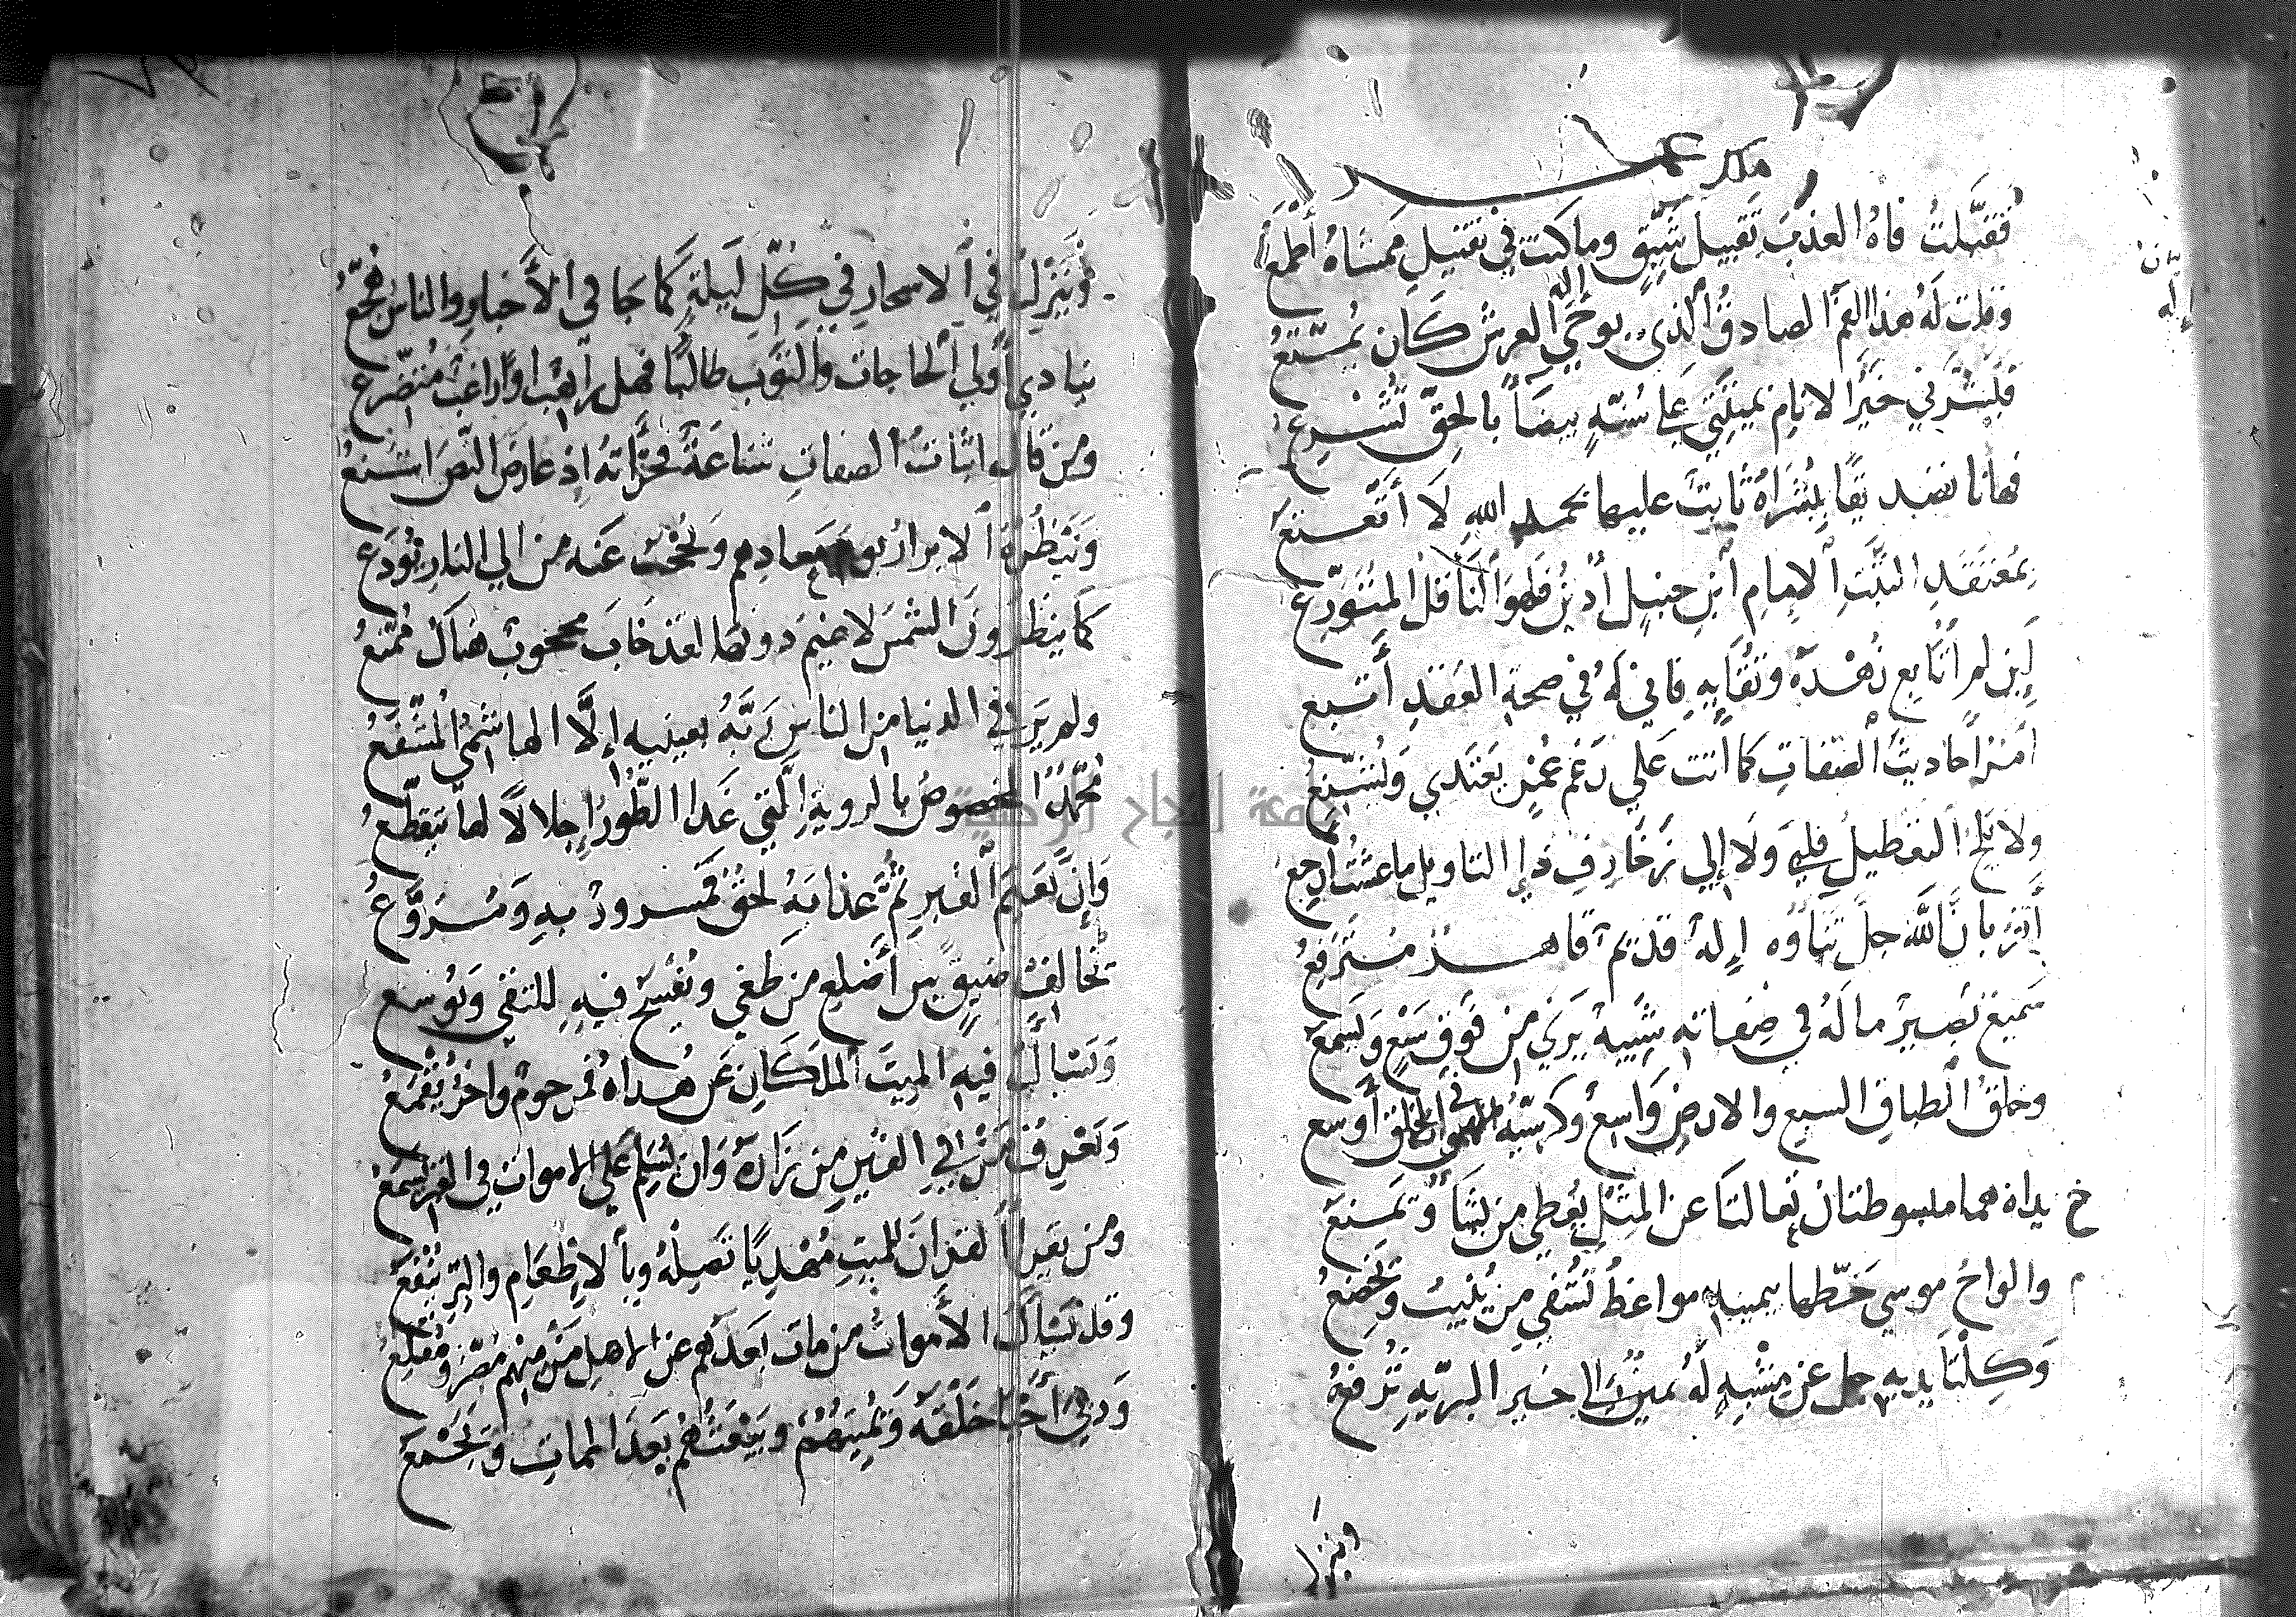 فَقَبَّلتُ فاهُ العذبَ تقبيلَ شَيِّقٍ وما كنت في تقبيل ممشاهُ أطمع
وقلت لَهُ هذا الفم الصادقُ الذي بوحي إله العرش كان يُمتَّعُ
فبشرني خيرُ الانام بميتتي على سُنّةٍ بيضاً بالحق تُشْرعُ
فها انا تصديقًا لبُشراهُ ثابت عليها بحمد الله لا أتتعتع
بمُعتقَدِ الثَبْتِ الامام ابنِ حنبل أدينُ فهو الناقد المتورّع
لين لم أتابع زُهْدهُ وتُقايه فاني لَهُ في صحة العقد أتبع
أمرّ أحاديث الصفات كما أتت على رغم غُمْرٍ يعتدي ويُشنّعُ
ولا يلج التعطيل قلبي ولا إلى زخارف ذي التاويل ما عشتُ أرجع
أقرّ بأن الله جل ثناؤه إلهٌ قديم قاهر مترفع
سميع بصير ماله في صفاته شبيه يرى من فوق سبع ويسمع
وخلق الطباق السبع والارض واسع وكرسيّهُ في الخلق أوسع
خ يداه هما مبسوطتان تعالتا عن المثل يُعطي من يشا ويمنع
والواحُ موسى خطّها بيمينه مواعظُ تشفي من يُنيبُ ويخضعُ
وكلتا يديه جل عن مشبهٍ لهُ يمينٌ الى خير البريّه تُرفعُ
وينزل
وينزل في الاسحار في كل ليلة كما جا في الأخبار والناس هُجّعُ
ينادي أولي الحاجات والتوب طالبًا فهل راهبًا أو راغبًا متضرع
ومن قال اثبات الصفات شناعة فجرأته اذ عارض النص اشنعُ
وتنظرهُ الابرار يوم معادهم ويُحجبُ عنه من الى النار يُوزع
كما ينظرون الشمس لا غيم دونها لقد خاب محجوب هناك مُمنّعُ
ولم يرَ في الدنيا من الناس ربّهُ بعينيه إلّا الهاشميُّ المشفّعُ
محمّدٌ المخصوص بالرويةِ التي غدا الطورُ إجلالًا لها يتقطعُ
وإن نعيم القبر ثمّ عذابهُ لحقّ فمسرورٌ به ومُروَّعُ
تخالف ضيق بين أضلع من طغى ويُفسح فيه للتقي ويُوسع
ويسأل فيه الميتَ الملكان عن هداهُ فمرحومٌ واخر يُقْمعُ
ويعرف من في القبر من زارهُ وان يُسلم على الاموات في القبر تسمعُ
ومن يقرأ القران للميت مُهديًا تصلهُ وبالاطعام والبِرّ يُنفعُ
وقد تسأل الأموات من مات بعدهم عن الاهل من منهم مصرّ ومقلعُ
وربي أحيا خلقه ويُميتهُمْ ويبعثُهُمْ بعد الممات ويجمع
جامعة النجاح الوطنية